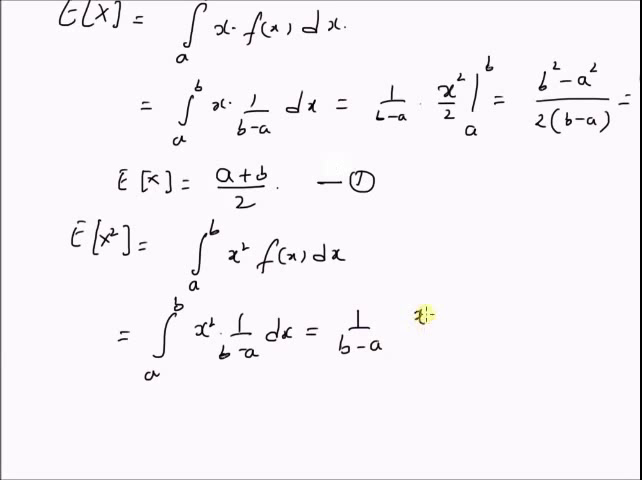 E[X] = ∫ₐ x. f(x) dx.
= ∫ₐᵇ x. 1/(b-a) dx = 1/(b-a) . x²/2 |ₐᵇ = (b²-a²)/(2(b-a)) =
E[x] = (a+b)/2. — ①
E[x²] = ∫ₐᵇ x² f(x) dx
= ∫ₐᵇ x². 1/(b-a) dx = 1/(b-a) x